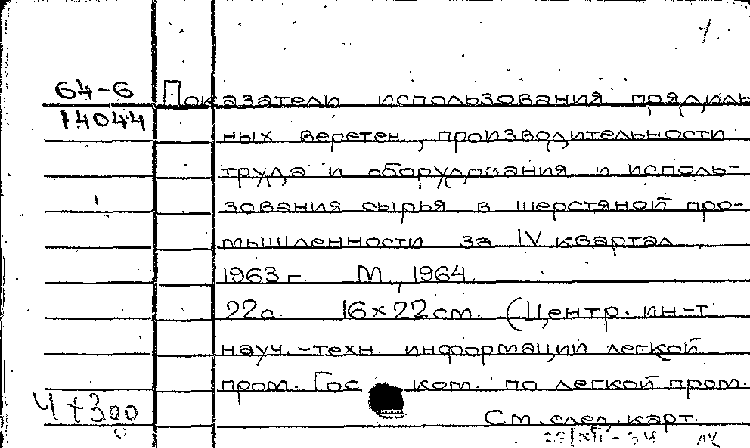 64-6
14044
Показатели использования прядиль
ных веретен, производительности
труда и оборудования и исполь-
зования сырья в шерстяной про-
мышленности за IV квартал
1963 г. М., 1964.
22с. 16×22 см. (Центр. ин-т
науч.-техн. информации легкой
пром. Гос ком. по легкой пром.
См. след. карт.